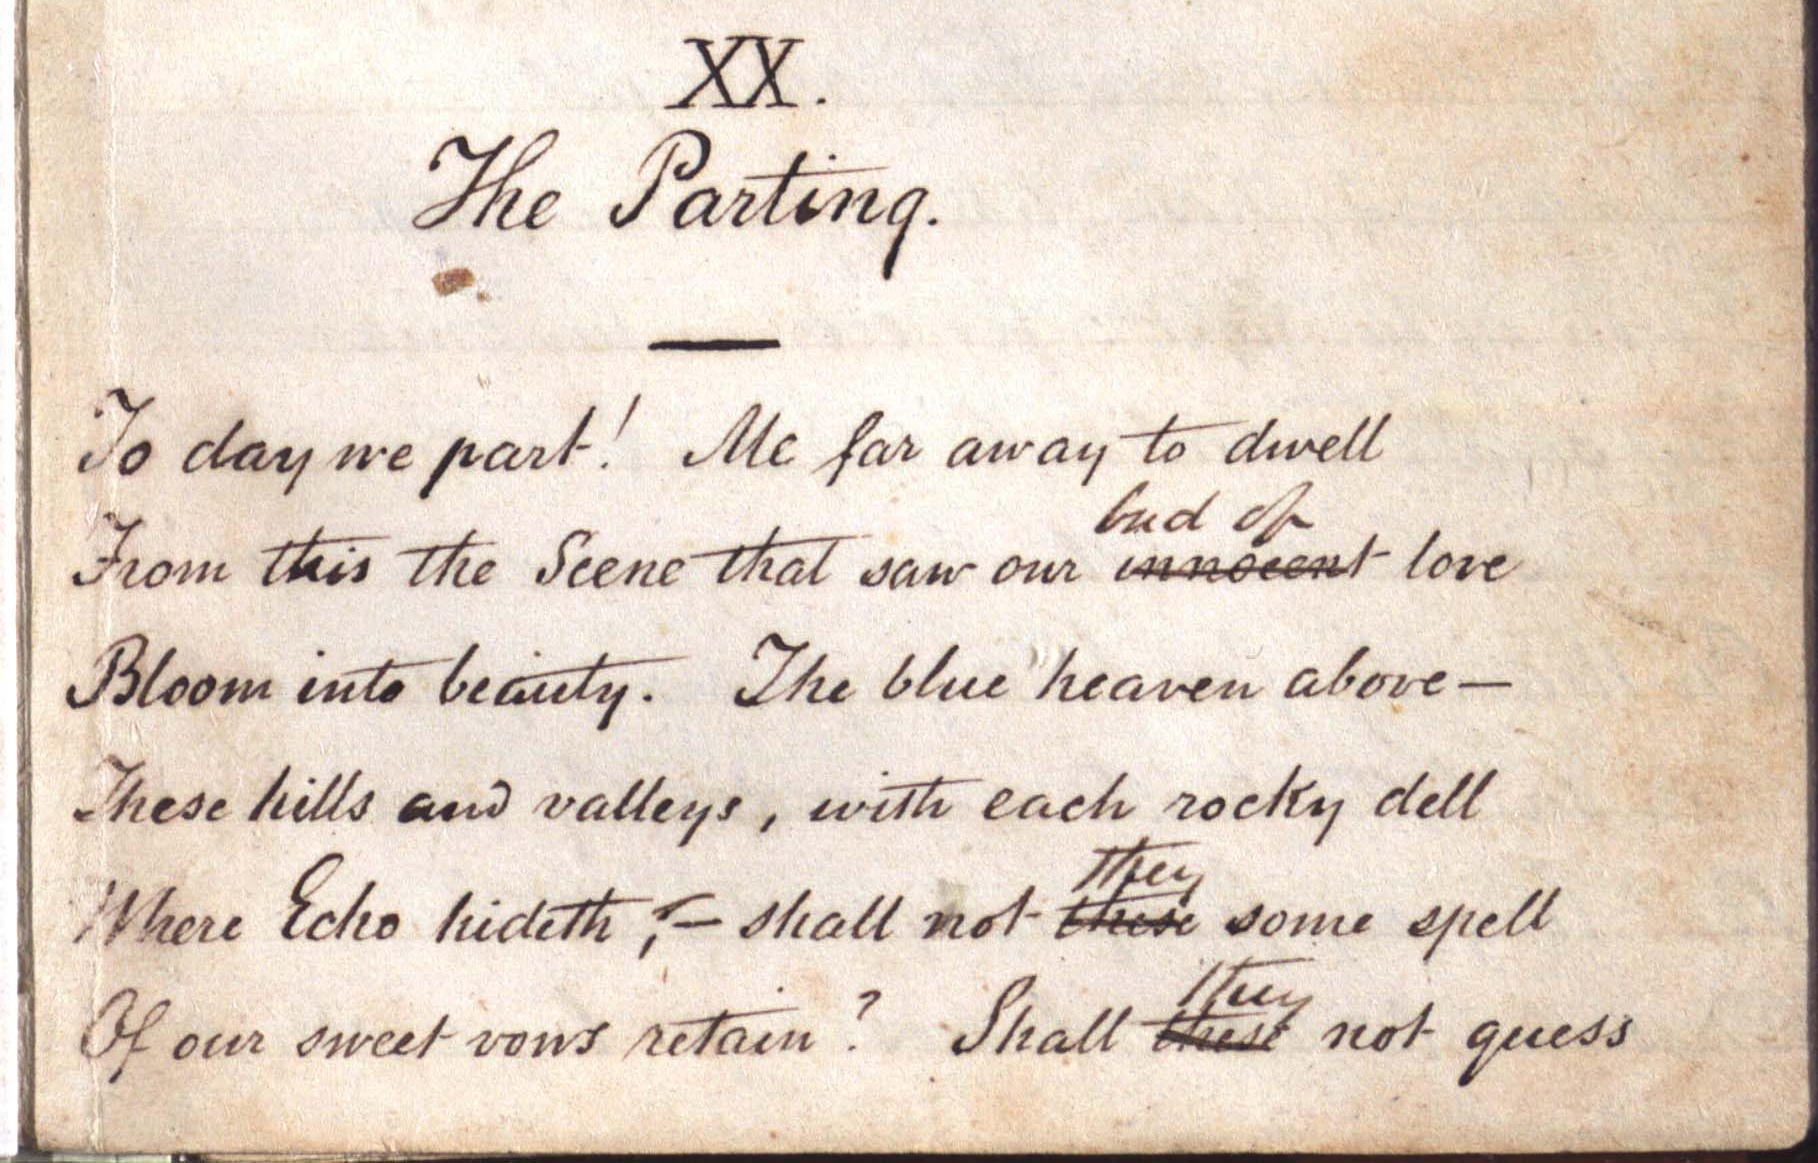 XX.
The Parting.
To day we part! Me far away to dwell
bud of
From this the Scene that saw our innocent love
Bloom into beauty. The blue heaven above—
These hills and valleys, with each rocky dell
they
Where Echo hideth,;— shall not these some spell
they
Of our sweet vows retain? Shall these not guess